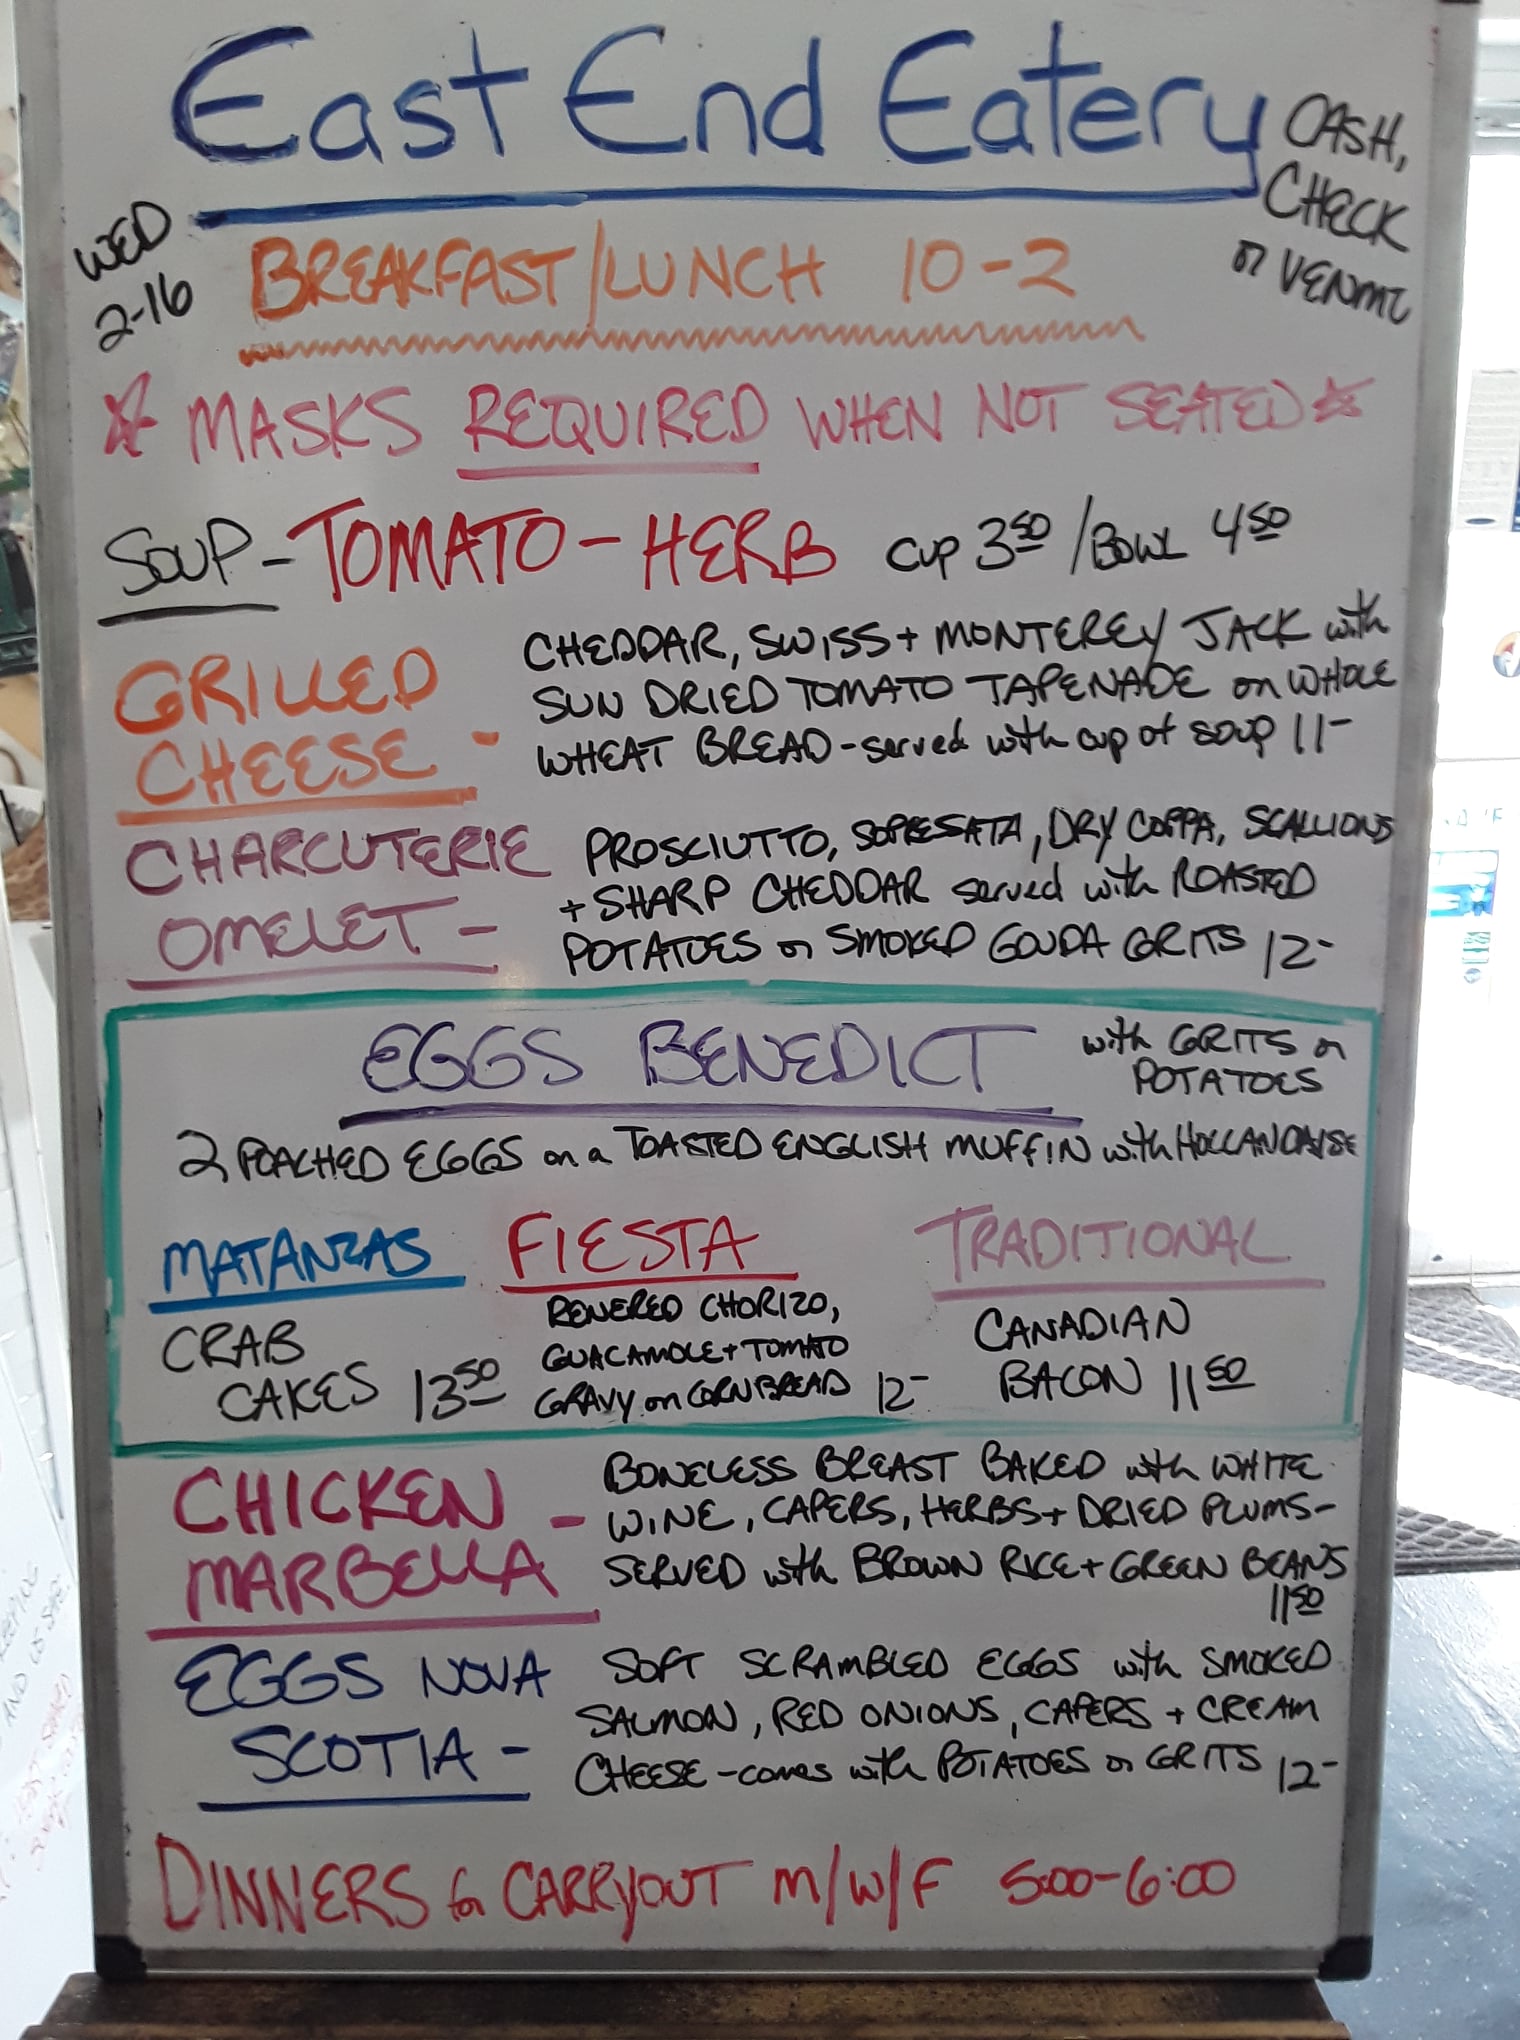 East End Eatery
CASH,
CHECK
or VENMO
WED
2-16
BREAKFAST/LUNCH 10-2
☆ MASKS REQUIRED WHEN NOT SEATED ☆
SOUP - TOMATO - HERB CUP 3 50 / BOWL 4 50
GRILLED
CHEESE -
CHEDDAR, SWISS + MONTEREY JACK with
SUN DRIED TOMATO TAPENADE on WHOLE
WHEAT BREAD - served with cup of soup 11-
CHARCUTERIE
OMELET -
PROSCIUTTO, SOPRESATA, DRY COPPA, SCALLIONS
+ SHARP CHEDDAR served with ROASTED
POTATOES or SMOKED GOUDA GRITS 12-
EGGS BENEDICT
with GRITS or
POTATOES
2 POACHED EGGS on a TOASTED ENGLISH MUFFIN with HOLLANDAISE
MATANZAS
CRAB
CAKES 13 50
FIESTA
RENERED CHORIZO,
GUACAMOLE + TOMATO
GRAVY on CORNBREAD 12-
TRADITIONAL
CANADIAN
BACON 11 50
CHICKEN
MARBELLA -
BONELESS BREAST BAKED with WHITE
WINE, CAPERS, HERBS + DRIED PLUMS -
SERVED with BROWN RICE + GREEN BEANS
11 50
EGGS NOVA
SCOTIA -
SOFT SCRAMBLED EGGS with SMOKED
SALMON, RED ONIONS, CAPERS + CREAM
CHEESE - comes with POTATOES or GRITS 12-
DINNERS for CARRYOUT M/W/F 5:00-6:00